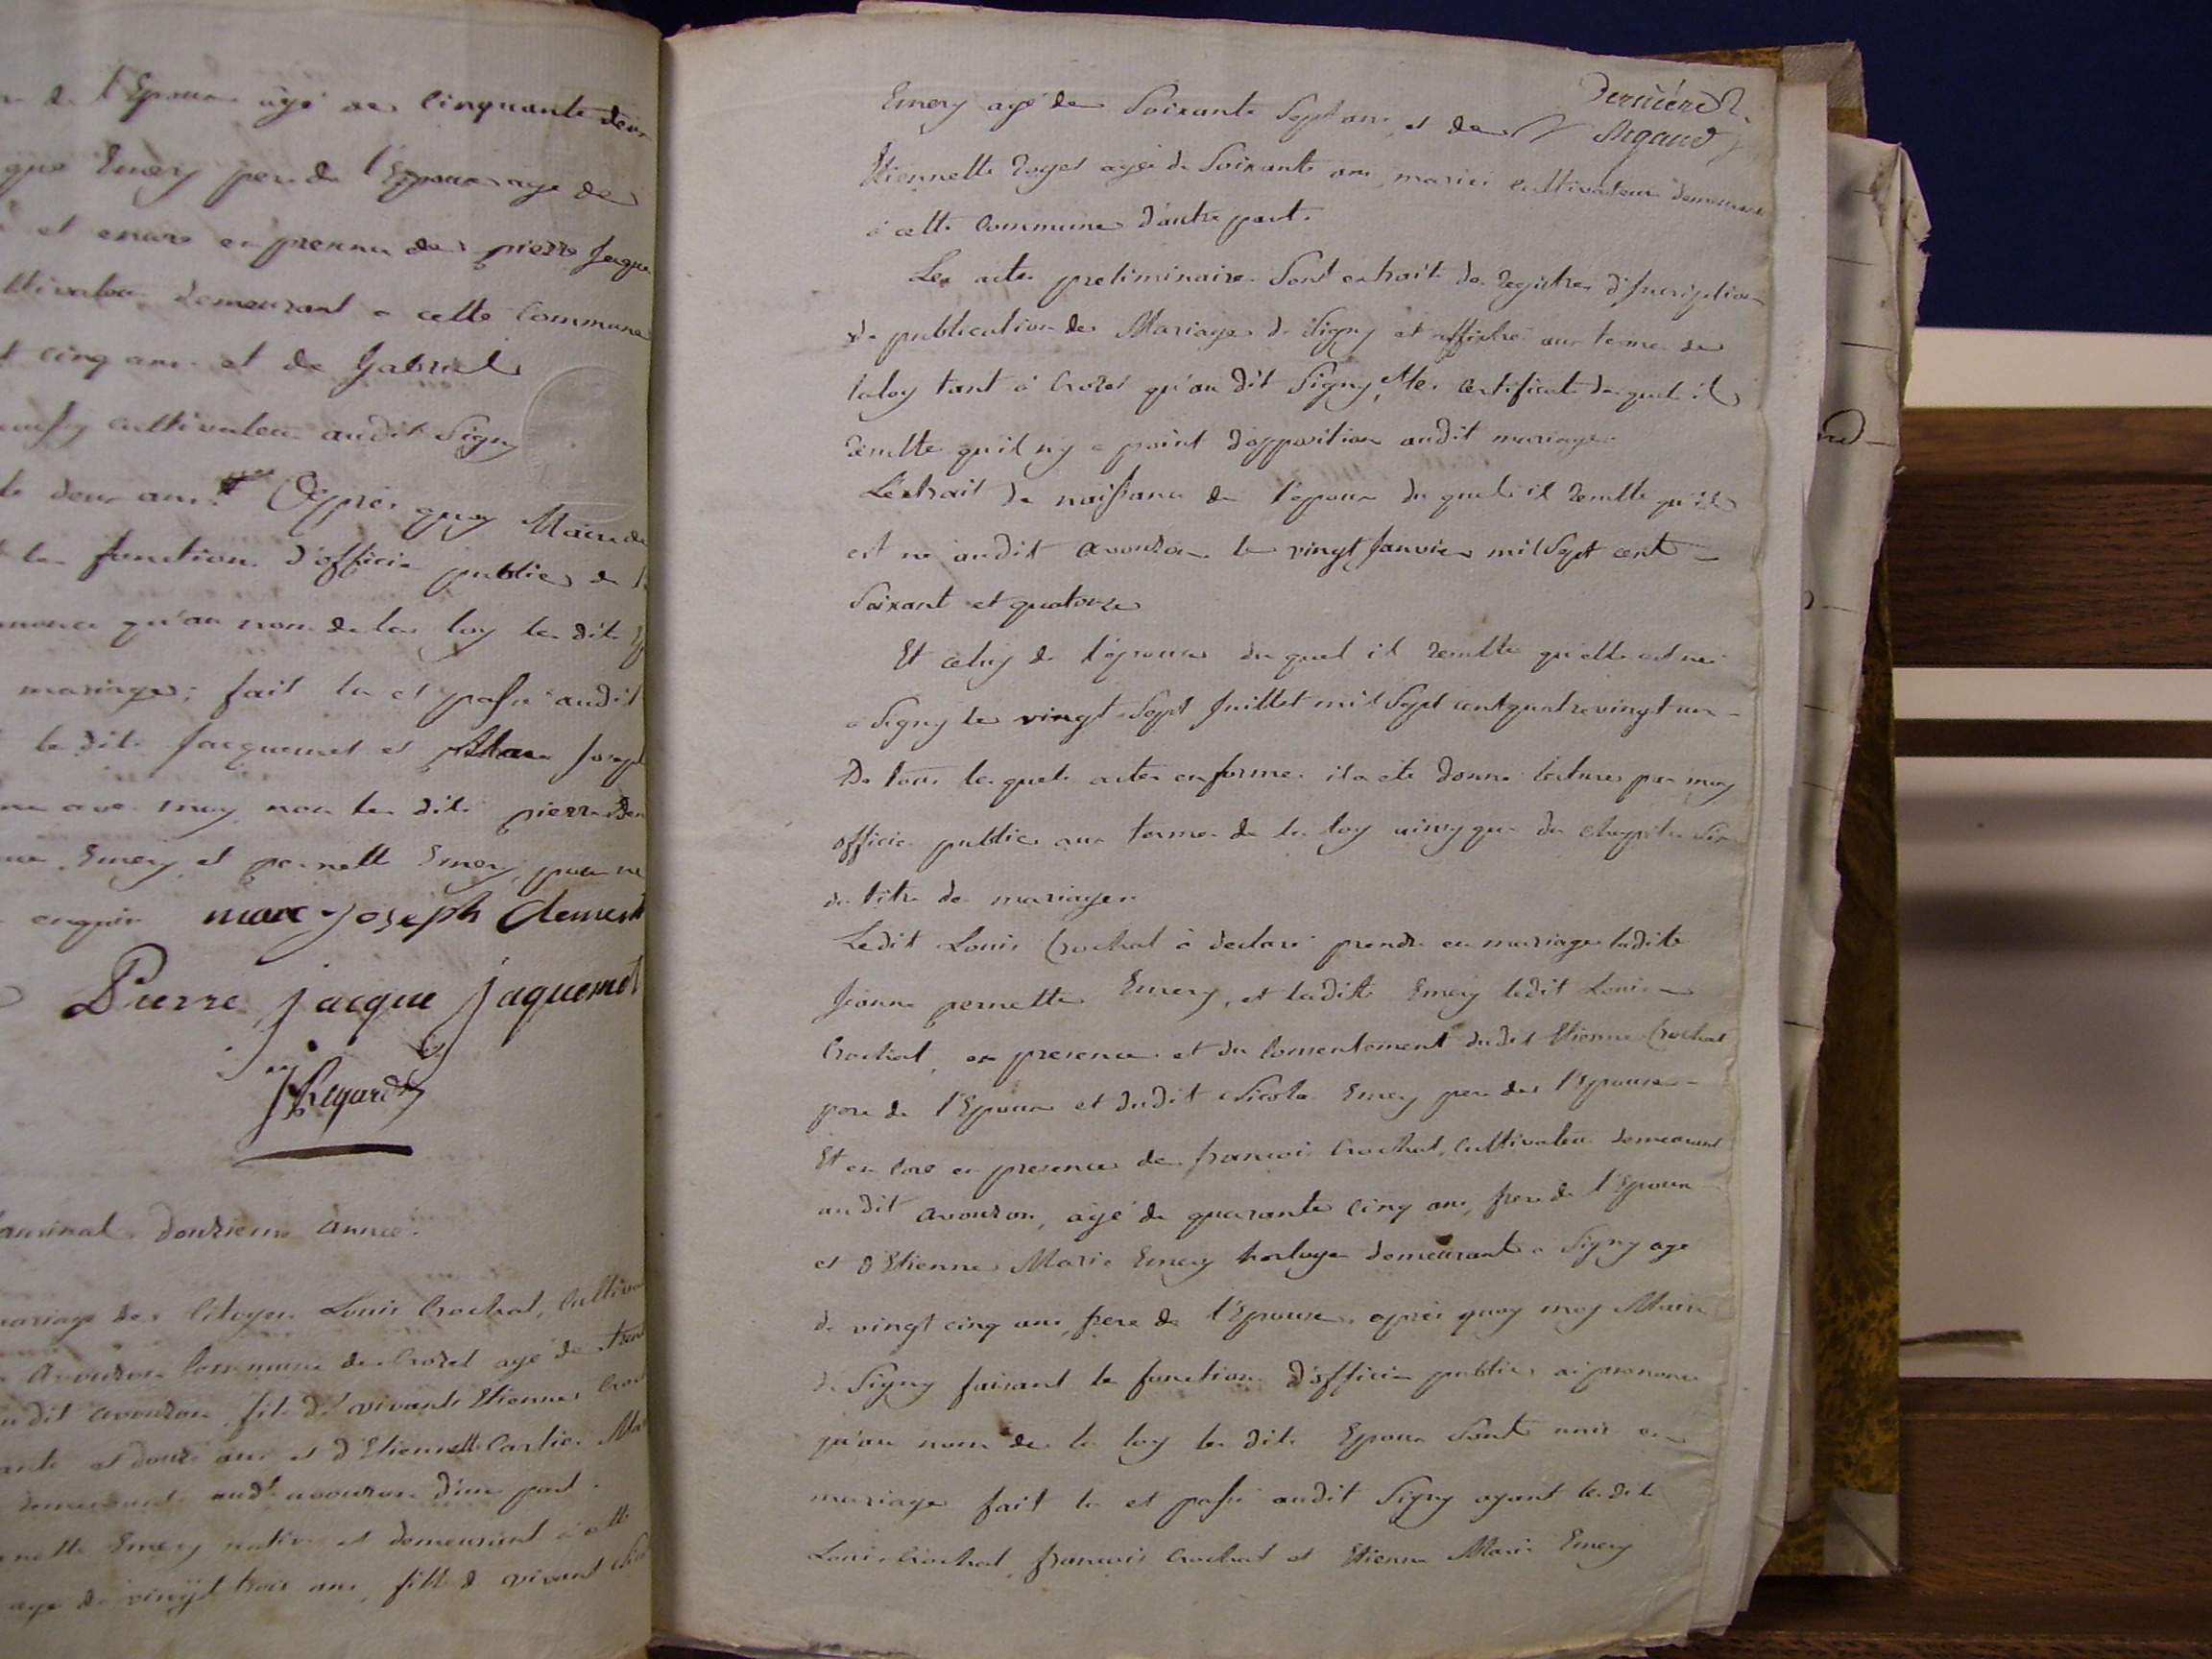 de l'Epoux agé de cinquante deux
que Emery pere de l'Epouse age de
et encore en presence de pierre Jaque
ltivateur demeurant a cette Commune
t cinq ans et de Gabriel
aussy cultivateur audit Signy
te deux ans Apres quoy Maire de
les fonction d'officier public de
nonce qu'au nom de la loy les dits
mariage; fait lu et passé audit
le dits Jacquemet et Marc Joseph
avec moy non les dits pierre
Emery et pernette Emery, pour ne
enquis marc Joseph Clement
Pierre jacque jaquemet
JRegard
Germinal douzieme année
mariage des Citoyen Louis Crochat, Cultiva
Avouzon Commune de Crozet agé de trent
udit avouzon fils de vivants Etienne Croc
ante et douze ans et d'Etiennette Cartier Ma
demeurant audt avouzon d'une part.
nette Emery native et demeurant a cette
age de vingt trois ans, fille de vivant Nico
Dernière
Emery agé de Soixante Sept ans, et de Regard
Etiennette Roget agée de Soixante ans, mariés cultivateur demeurant
a cette Commune d'autre part.
Les actes preliminaire Sont extrait des registres d'Inscription
de publication des Mariages de Signy et affiché aux termes de
la loy tant à Crozet qu'au dit Signy, les certificats desquels il
résulte qu'il ny a point d'opposition audit mariage.
L'extrait de naissance de l'epoux du quels il resulte qu'il
est né audit avouzon le vingt Janvier mil Sept cent
Soixant et quatorze
Et celuy de l'épouse du quel il resulte qu'elle est née
a Signy le vingt Sept Juillet mil Sept cent quatre vingt un
De tous les quels actes en forme il a été donné lecture par moy
officier public aux termes de la loy ainsy que du chapitre Six
du titre de mariage.
Ledit Louis Crochat à declaré prendre en mariage ladite
Jeanne pernette Emery, et ladite Emery ledit Louis
Crochat, en presence et du consentement dudit Etienne Crochat
pere de l'Epoux et dudit Nicolas Emery pere de l'Epouse
Et en core en presence de francois Crochat, Cultivateur demeurant
audit avouzon, agé de quarante cinq ans, frere de l'Epoux
et d'Etienne Marie Emery horloger demeurant a Signy age
de vingt cinq ans frere de l'Epouse, après quoy moy Maire
de Signy faisant les fonction d'officier public ai prononcé
qu'au nom de la loy les dits Epoux Sont unis en
mariage fait lu et passé audit Signy ayant les dits
Louis Crochat, francois Crochat et Etienne Marie Emery